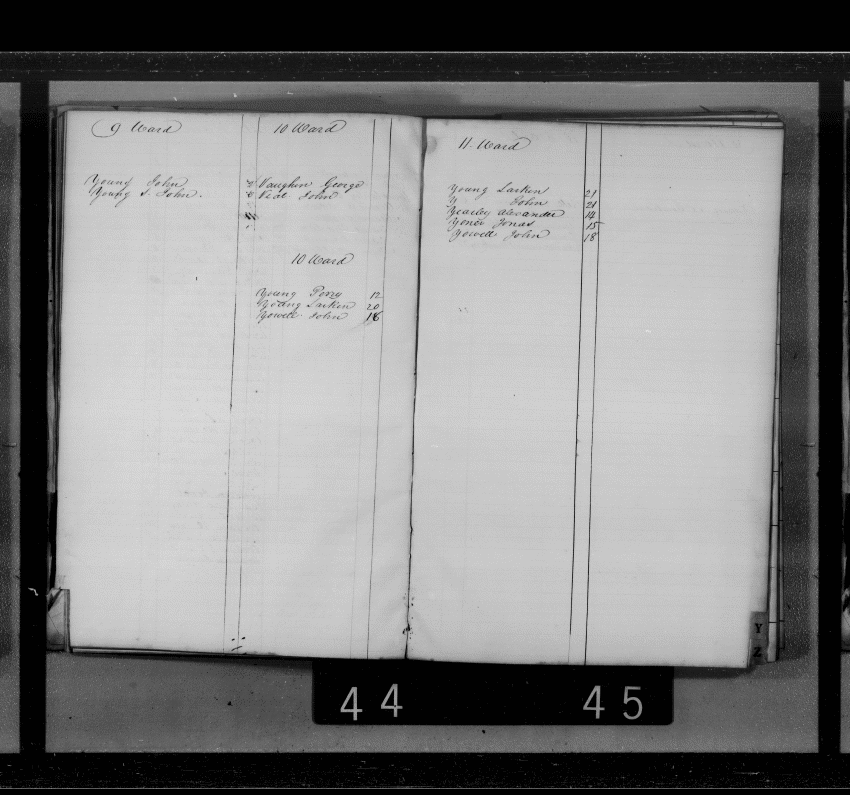 9 Ward
Young John
Young S. John.
10 Ward
Vaughn George
Veal John
10 Ward
Young Perry 12
Young Larkin 20
Yowell John 18
11 Ward
Young Larkin 21
Y John 21
Yearley Alexander 14
Jonas 15
Yowell John 18
Y
Z
44
45